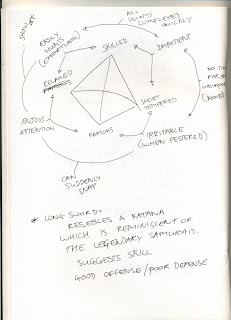 SHOW OFF
ALL
HUNTS
COMPLETED
QUICKLY
EASILY
HUNTS
SKILLED
IMPATIENT
RELAXED
NO
FOR
SHORT
TEMPERED
ENJOYS
ATTENTION
FAMOUS
IRRITABLE
(WHEN PESTERED)
CAN
SUDDENLY
SNAP
* LONG SWORD -
RESEBLES A KATANA
WHICH IS REMINISCENT OF
THE LEGENDARY SAMURAIS.
SUGGESTS SKILL.
GOOD OFFENSE/POOR DEFENSE